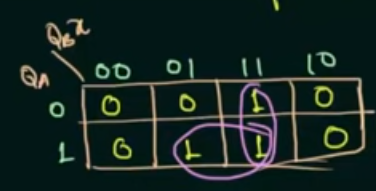 Q_B x
Q_A 00 01 11 10
0 0 0 1 0
1 0 1 1 0